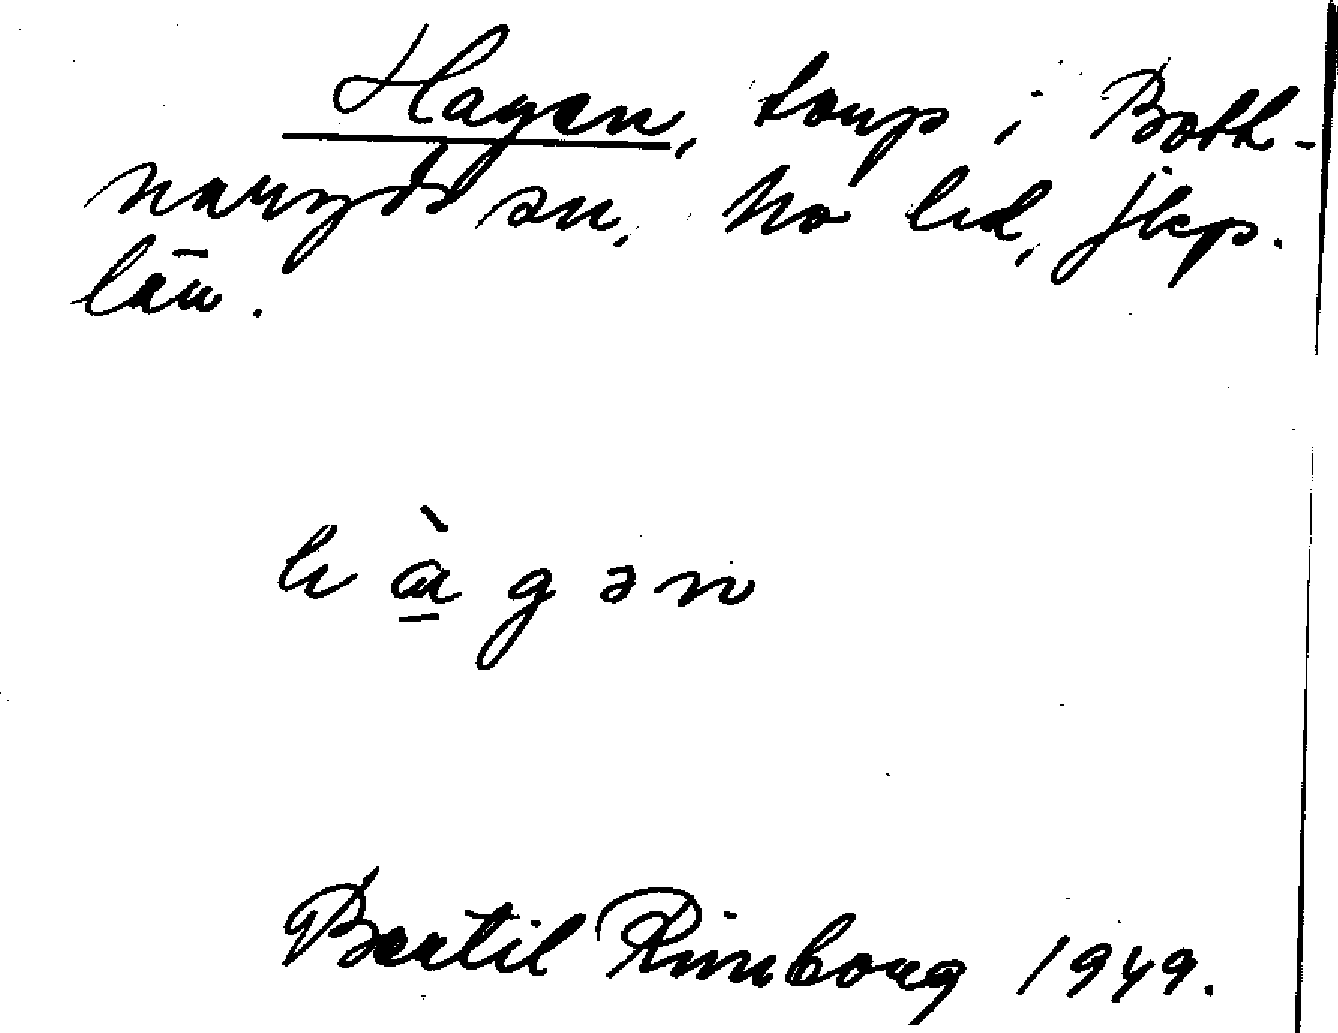 Hagen, torp i Bott-
naryds sn, Mo hd, Jkp.
län.
h à g ə n
Bertil Rimborg 1949.